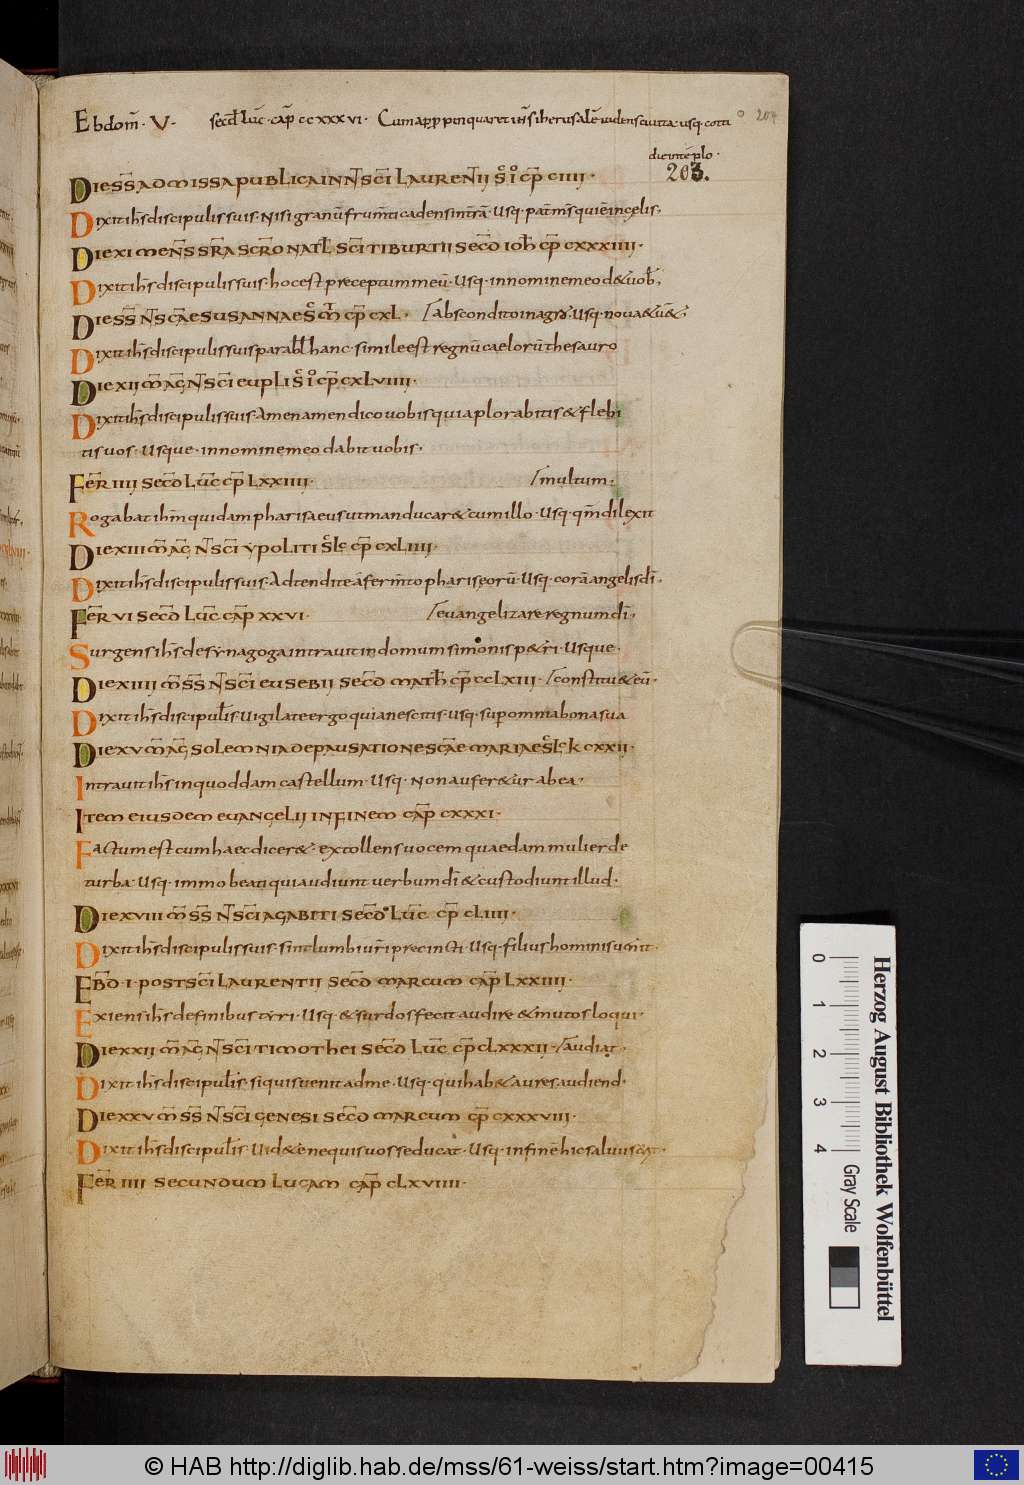 Ebdom̄ · V · secd̄ luc̄ · cap̄ ccxxxvi · Cum app̄ pinquaret ih̄s iherusalē · uidens ciuitatē · usq; cotti
die in tēplo ·
203.
Die ss̄ ad missa publica in nt̄ sc̄i laurentii sc̄d ioh̄ cp̄ ciiii ·
Dixit ih̄s discipulis suis · Nisi granū frum̄ti cadens in tr̄ā · Usq; pat̄ m̄s qui ē in cęlis,
Die xi mens̄ ss̄ra scr̄o natl̄ sc̄i tiburtii secd̄o ioh̄ cp̄ cxxxiiii ·
Dixit ih̄s discipulis suis · hoc est preceptum meū · Usq; in nomine meo d&uob̄,
Die ss̄ nt̄ sc̄ae susannae sc̄d mt̄h cp̄ cxl · / abscondito in agro · Usq; noua&u&̄
Dixit ih̄s discipulis suis parabl̄ hanc · simile est regnū caelorū thesauro
Die xii m̄ aḡ nt̄ sc̄i eupli sc̄d ioh̄ cp̄ cxlviiii ·
Dixit ih̄s discipulis suis · Amen amen dico uobis quia plorabitis & flebi
tis uos · Usque · in nomine meo dabit uobis ·
Fer̄ iiii secd̄ luc̄ cp̄ lxxiiii · / multum ·
Rogabat ih̄m quidam pharisaeus ut manducar& cum illo · Usq; qm̄ dilexit
Die xiii m̄ aḡ nt̄ sc̄i ypoliti sc̄d lc̄ cp̄ cxliiii ·
Dixit ih̄s discipulis suis · Adtendite á ferm̄to phariseorū · Usq; corā angelis dī ·
Fer̄ vi secd̄ luc̄ cap̄ xxvi · / euangelizare regnum dī ·
Surgens ih̄s de synagoga intrauit in domum simonis p&ri · Usque ·
Die xiiii m̄ ss̄ nt̄ sc̄i eusebii secd̄ math̄ cp̄ cclxiii · / constitu& eū ·
Dixit ih̄s discipul̄is · Uigilate ergo quia nescitis · Usq; sup̄ omnia bona sua
Die xv m̄ aḡ solemnia de pausatione sc̄ae mariae sc̄d lc̄ k cxxii ·
Intrauit ih̄s in quoddam castellum · Usq; Non aufer&ur ab ea ·
Item eiusdem euangelii in finem cap̄ cxxxi ·
Factum est cum haec dicer& · extollens uocem quaedam mulier de
turba · Usq; immo beati qui audiunt uerbum dī & custodiunt illud ·
Die xviii m̄ ss̄ nt̄ sc̄i agabiti secd̄o luc̄ cp̄ cliiii ·
Dixit ih̄s discipulis suis · sint lumbi ur̄i precincti · Usq; filius hominis ueni&
Ebd̄ · i · post sc̄i laurentii secd̄ marcum cap̄ lxxiiii ·
Exiens ih̄s de finibus tyri · Usq; & surdos fecit audire & mutos loqui ·
Die xxii m̄ aḡ nt̄ sc̄i timothei secd̄ luc̄ cp̄ clxxxii · / audiat ·
Dixit ih̄s discipul̄is · si quis uenit ad me · Usq; qui hab& aures audiend ·
Die xxv m̄ ss̄ nt̄ sc̄i genesi secd̄ marcum cp̄ cxxxviii ·
Dixit ih̄s discipul̄is · Uid&e ne quis uos seducat · Usq; in finē hic saluus erit ·
Fer̄ iiii secundum lucam cap̄ clxviiii ·
0 1 2 3 4
Gray Scale
Herzog August Bibliothek Wolfenbüttel
© HAB http://diglib.hab.de/mss/61-weiss/start.htm?image=00415